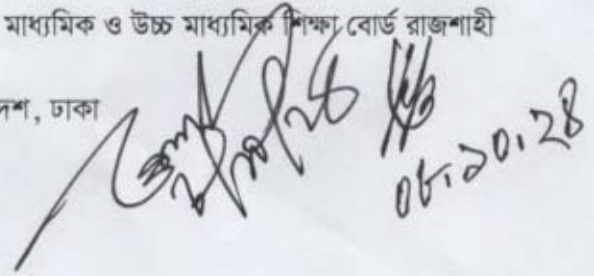 মাধ্যমিক ও উচ্চ মাধ্যমিক শিক্ষা বোর্ড রাজশাহী
দেশ, ঢাকা
০৮.১০.২৪